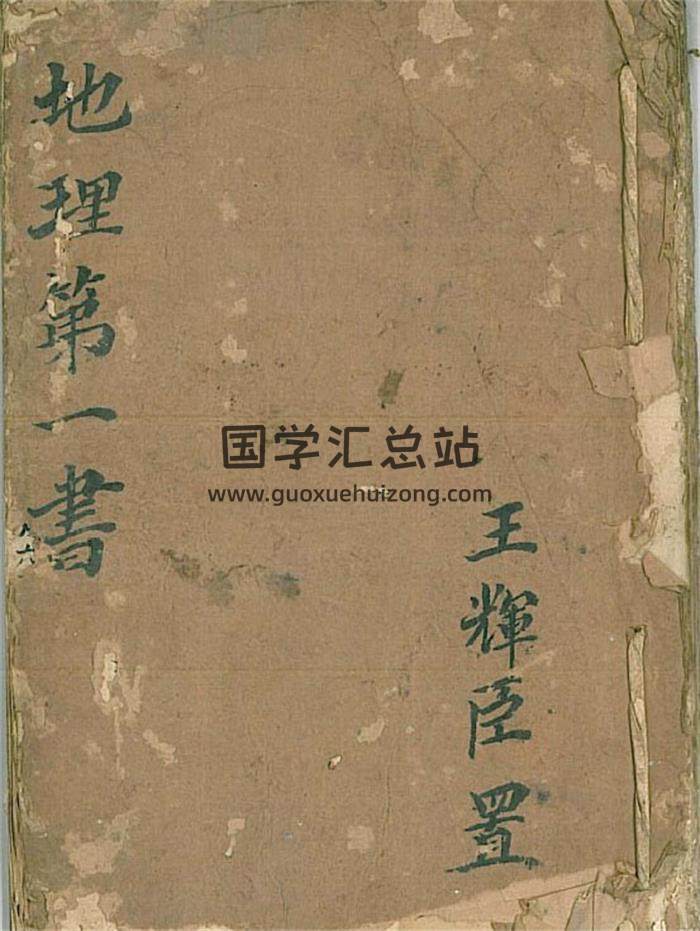 王輝臣置
地理第一書
国学汇总站
www.guoxuehuizong.com